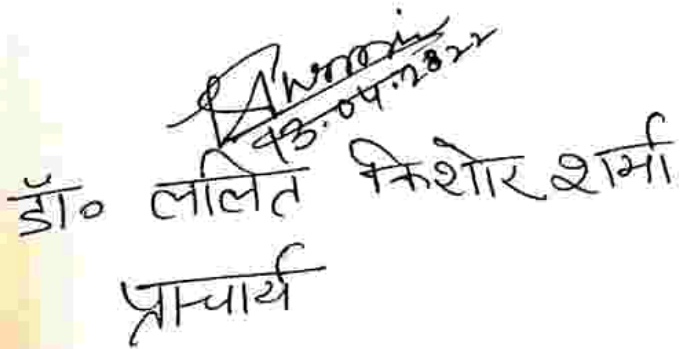 13.04.2022
डॉ० ललित किशोर शर्मा
प्राचार्य